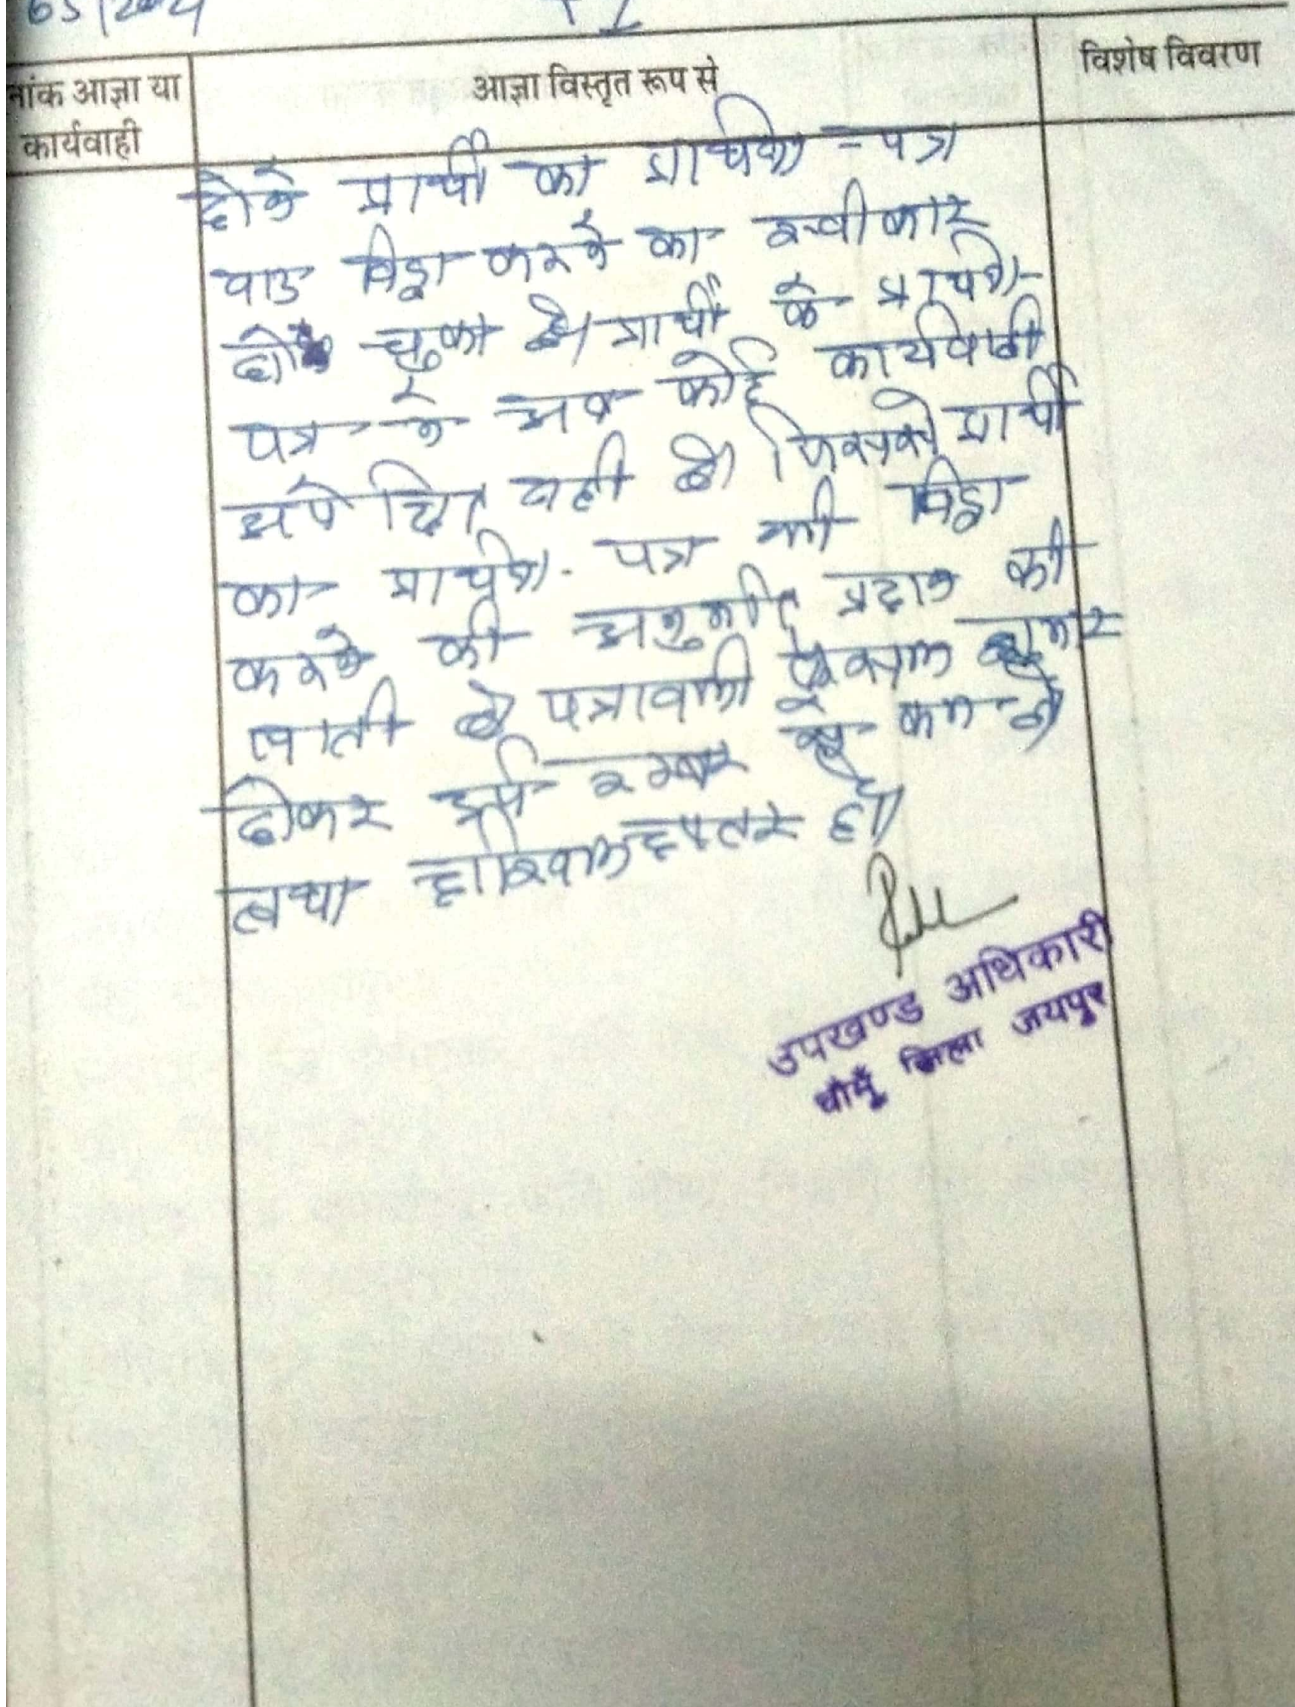 65/2024
नांक आज्ञा या
कार्यवाही
आज्ञा विस्तृत रूप से
विशेष विवरण
होने प्रार्थी का प्रार्थना-पत्र
वाद विड्रा करने का स्वीकार
हो चुका है। प्रार्थी के प्रार्थना-
पत्र में अब कोई कार्यवाही
अपेक्षित नही है। जिससे प्रार्थी
का प्रार्थना-पत्र को विड्रा
करने की अनुमति प्रदान की
जाती है पत्रावली फैसल शुमार
होकर दर्ज नम्बर से कम हो
तथा दाखिल दफ्तर हो।
उपखण्ड अधिकारी
चौमूँ जिला जयपुर